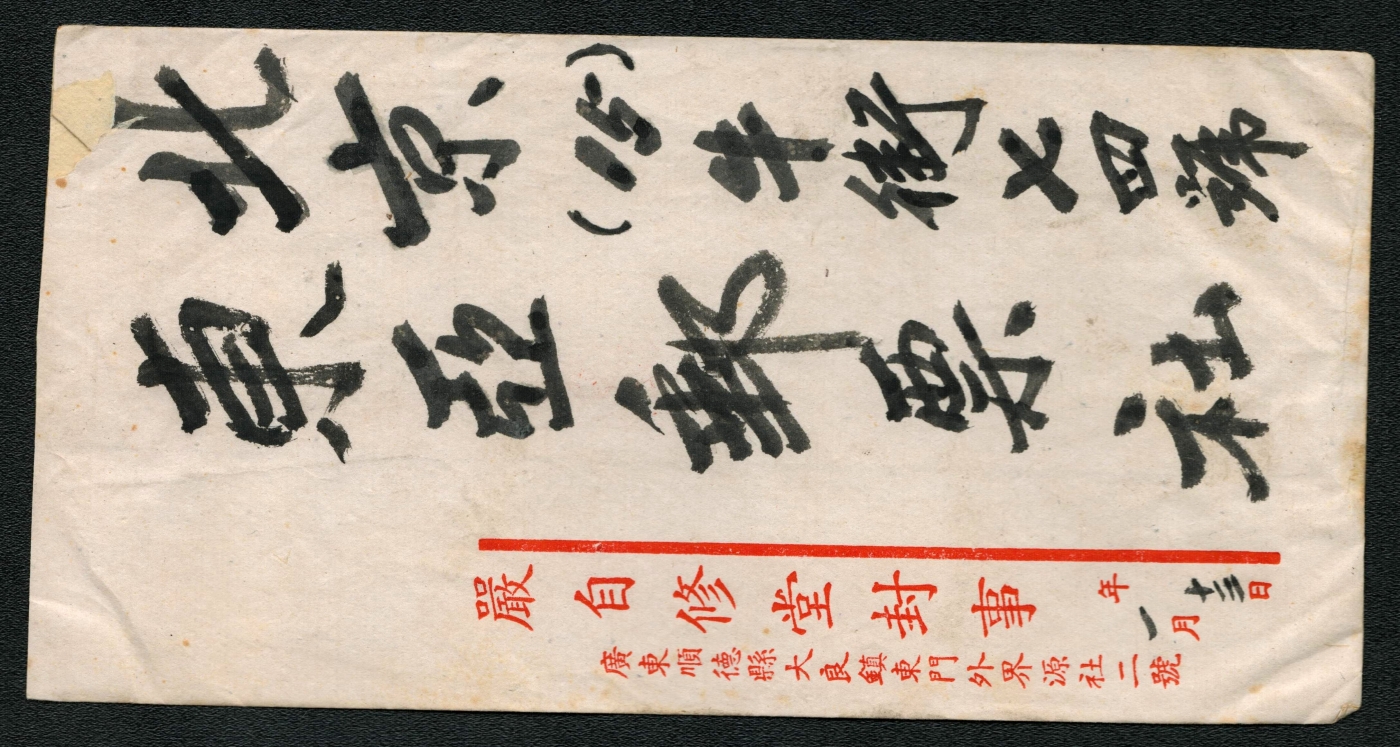 北京(15)牛街七四號
東亞郵票社
嚴自修堂封事
年一月十三日
廣東順德縣大良鎮東門外界源社二號